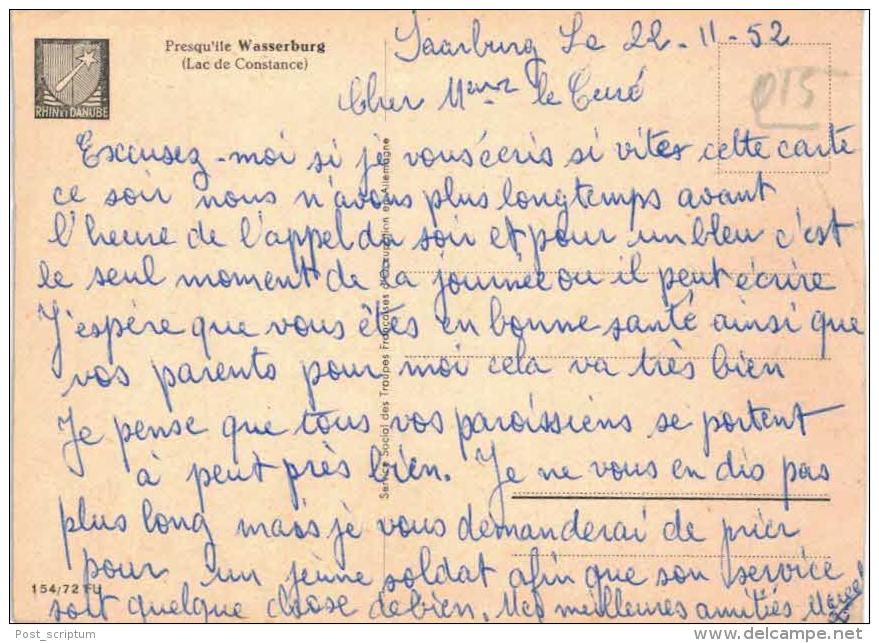 Presqu'île Wasserburg
(Lac de Constance)
RHIN ET DANUBE
Saarburg Le 22-11-52
015
Cher Mr le Curé
Excusez-moi si je vous écris si vites cette carte
ce soir nous n'avons plus longtemps avant
l'heure de l'appel du soir et pour un bleu c'est
le seul moment de la journée ou il peut écrire
J'espère que vous êtes en bonne santé ainsi que
vos parents pour moi cela va très bien
Je pense que tous vos paroissiens se portent
à peut près bien. Je ne vous en dis pas
plus long mais je vous demanderai de prier
pour un jeune soldat afin que son service
soit quelque chose de bien. Mes meilleures amitiés Marcel
Service Social des Troupes Françaises d'Occupation en Allemagne
154/72 FU
Post_scriptum
delcampe.net